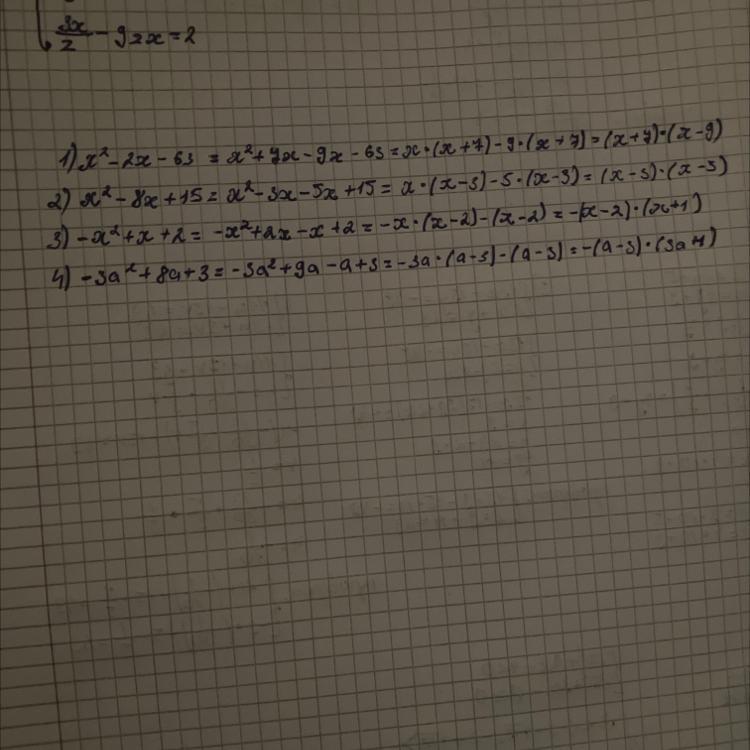 3x/2 - 92x = 2
1) x² - 2x - 63 = x² + 7x - 9x - 63 = x·(x+7) - 9·(x+7) = (x+7)·(x-9)
2) x² - 8x + 15 = x² - 3x - 5x + 15 = x·(x-3) - 5·(x-3) = (x-3)·(x-5)
3) -x² + x + 2 = -x² + 2x - x + 2 = -x·(x-2) - (x-2) = -(x-2)·(x+1)
4) -3a² + 8a + 3 = -3a² + 9a - a + 3 = -3a·(a-3) - (a-3) = -(a-3)·(3a+1)